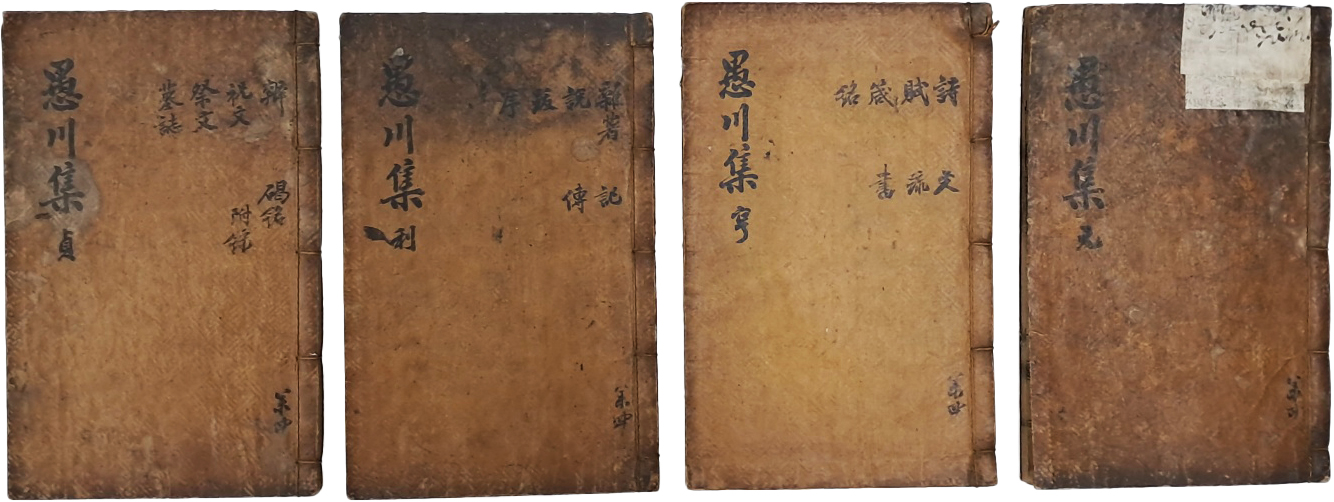 愚川集 元
共四
詩
賦
箴
銘
文
疏
書
愚川集 亨
共四
雜著
說
跋
序
記
傳
愚川集 利
共四
祝文
祭文
墓誌
碣銘
附錄
愚川集 貞
共四